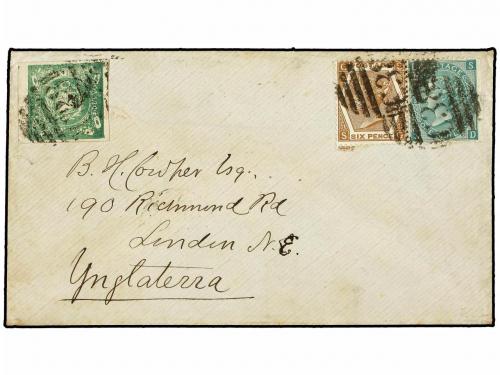 SIX PENCE
POSTAGE
B. H. Cowper Esq.
190 Richmond Rd
London N.E.
Ynglaterra